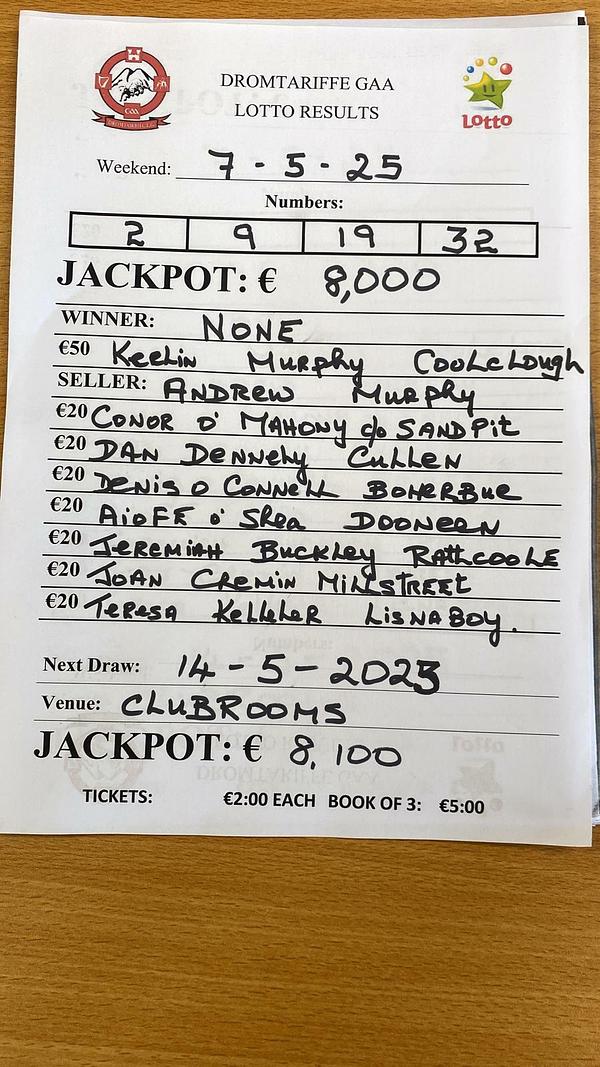 DROMTARIFFE GAA
LOTTO RESULTS
GAA
Lotto
Weekend: 7-5-25
Numbers:
2 9 19 32
JACKPOT: € 8,000
WINNER: NONE
€50 Keelin Murphy Coolclough
SELLER: ANDREW Murphy
€20 CONOR O' MAHONY c/o SANDPit
€20 DAN Dennehy Cullen
€20 Denis O Connell BOHERBue
€20 AioFE O'Shea DOONEEN
€20 Jeremiah Buckley RathCOOLE
€20 JOAN Cremin Millstreet
€20 Teresa Kelleher LisnaBOY.
Next Draw: 14-5-2025
Venue: CLUBROOMS
JACKPOT: € 8,100
TICKETS: €2:00 EACH BOOK OF 3: €5:00